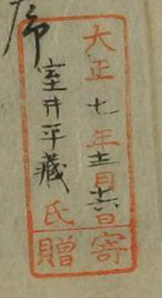 序
大正七年十二月十六日寄
室井平藏氏贈